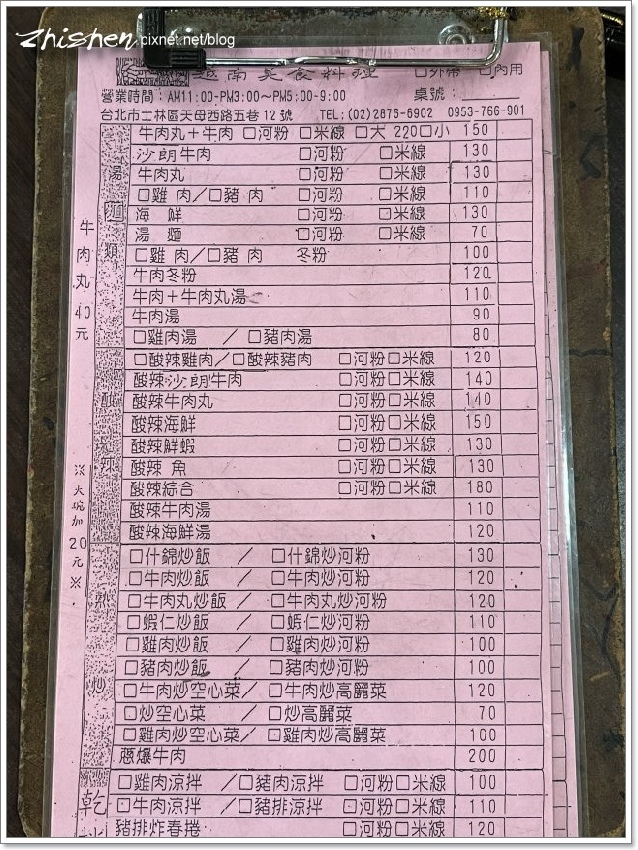 zhishen pixnet.net/blog
越南美食料理 □外帶 □內用
營業時間：AM11:00-PM3:00～PM5:00-9:00 桌號：
台北市士林區天母西路五巷12號 TEL:(02)2875-6902 0953-766-901
湯麵類
牛肉丸＋牛肉 □河粉 □米線 □大 220□小 150
沙朗牛肉 □河粉 □米線 130
牛肉丸 □河粉 □米線 130
□雞 肉／□豬 肉 □河粉 □米線 110
海 鮮 □河粉 □米線 130
湯 麵 □河粉 □米線 70
□雞 肉／□豬 肉 冬粉 100
牛肉冬粉 120
牛肉＋牛肉丸湯 110
牛肉湯 90
□雞肉湯 ／ □豬肉湯 80
酸辣
□酸辣雞肉／□酸辣豬肉 □河粉□米線 120
酸辣沙朗牛肉 □河粉□米線 140
酸辣牛肉丸 □河粉□米線 140
酸辣海鮮 □河粉□米線 150
酸辣鮮蝦 □河粉□米線 130
酸辣 魚 □河粉□米線 130
酸辣綜合 □河粉□米線 180
酸辣牛肉湯 110
酸辣海鮮湯 120
熱炒
□什錦炒飯 ／ □什錦炒河粉 130
□牛肉炒飯 ／ □牛肉炒河粉 120
□牛肉丸炒飯 ／ □牛肉丸炒河粉 120
□蝦仁炒飯 ／ □蝦仁炒河粉 110
□雞肉炒飯 ／ □雞肉炒河粉 100
□豬肉炒飯 ／ □豬肉炒河粉 100
□牛肉炒空心菜／ □牛肉炒高麗菜 120
□炒空心菜 ／ □炒高麗菜 70
□雞肉炒空心菜／ □雞肉炒高麗菜 100
蔥爆牛肉 200
乾
□雞肉涼拌 ／□豬肉涼拌 □河粉□米線 100
□牛肉涼拌 ／□豬排涼拌 □河粉□米線 110
豬排炸春捲 □河粉□米線 120
牛肉丸40元
※大碗加20元※